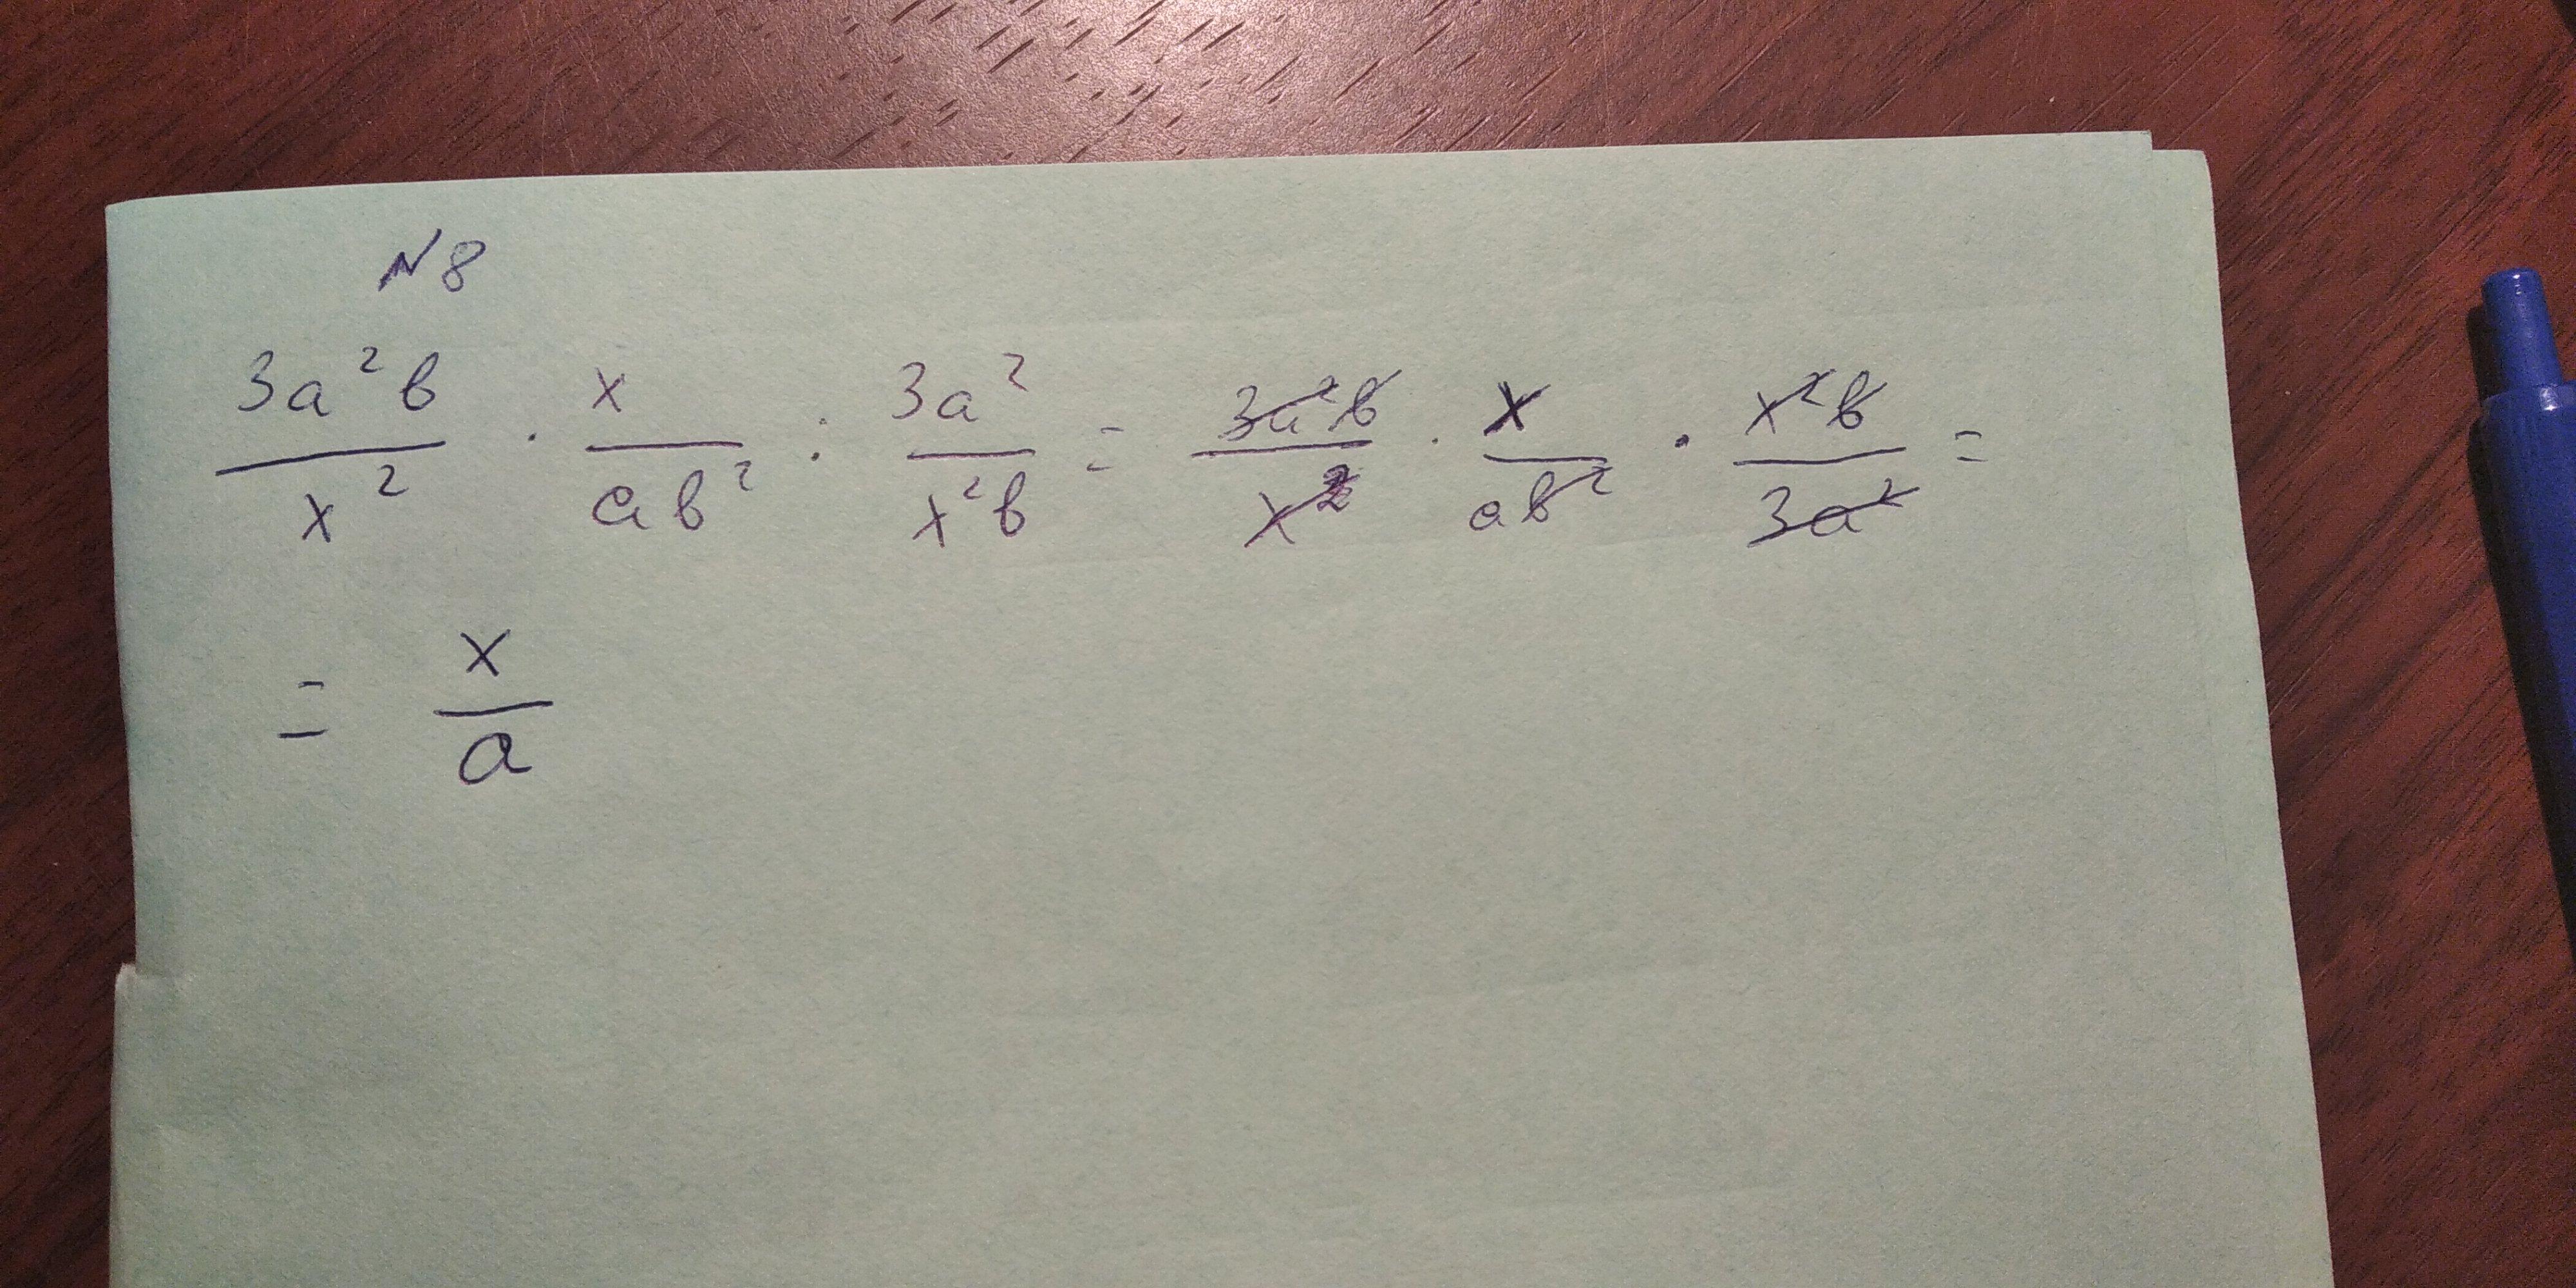 N 8
3a²b/x² · x/ab² : 3a²/x²b = 3a²b/x² · x/ab² · x²b/3a² =
= x/a